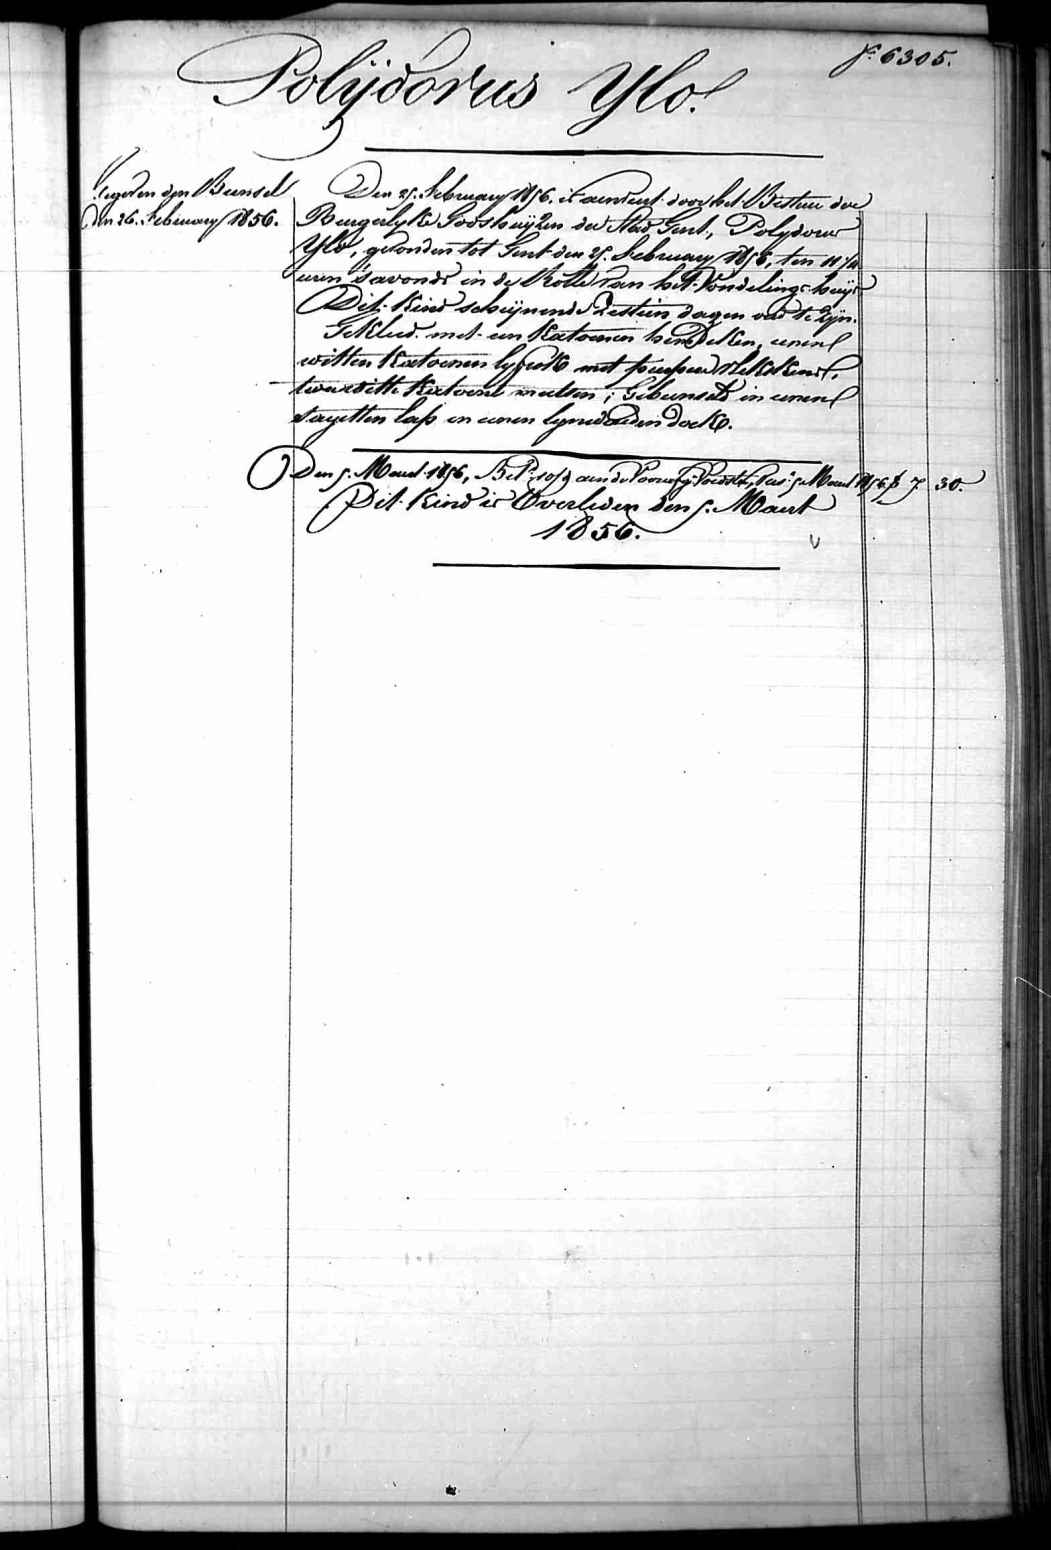 f° 6305.
Polÿdorus Ylo.
gegeven den Bunsel
den 26. February 1856.
Den 25. February 1856. is aenveert door het Bestier der
Burgerlyke Godshuijzen der Stad Gent, Polydorus
Ylo, gevonden tot Gent den 25. February 1856, ten 11 1/4
uren 's avonds in de Rolle van het Vondelings-huijs
Dit Kind schijnende Zestien dagen oud te zijn.
Gekleed met een Katoenen hemdeken, eenen
witten Katoenen lyfrok met
twee witte Katoene mutsen; Gebunseld in eenen
sayetten lap en eenen lynwaeden doek.
Den 5. Maert 1856, Bet. aen de 5 Maert 1856 f 7 30.
Dit Kind is Overleden den 5. Maert
1856.